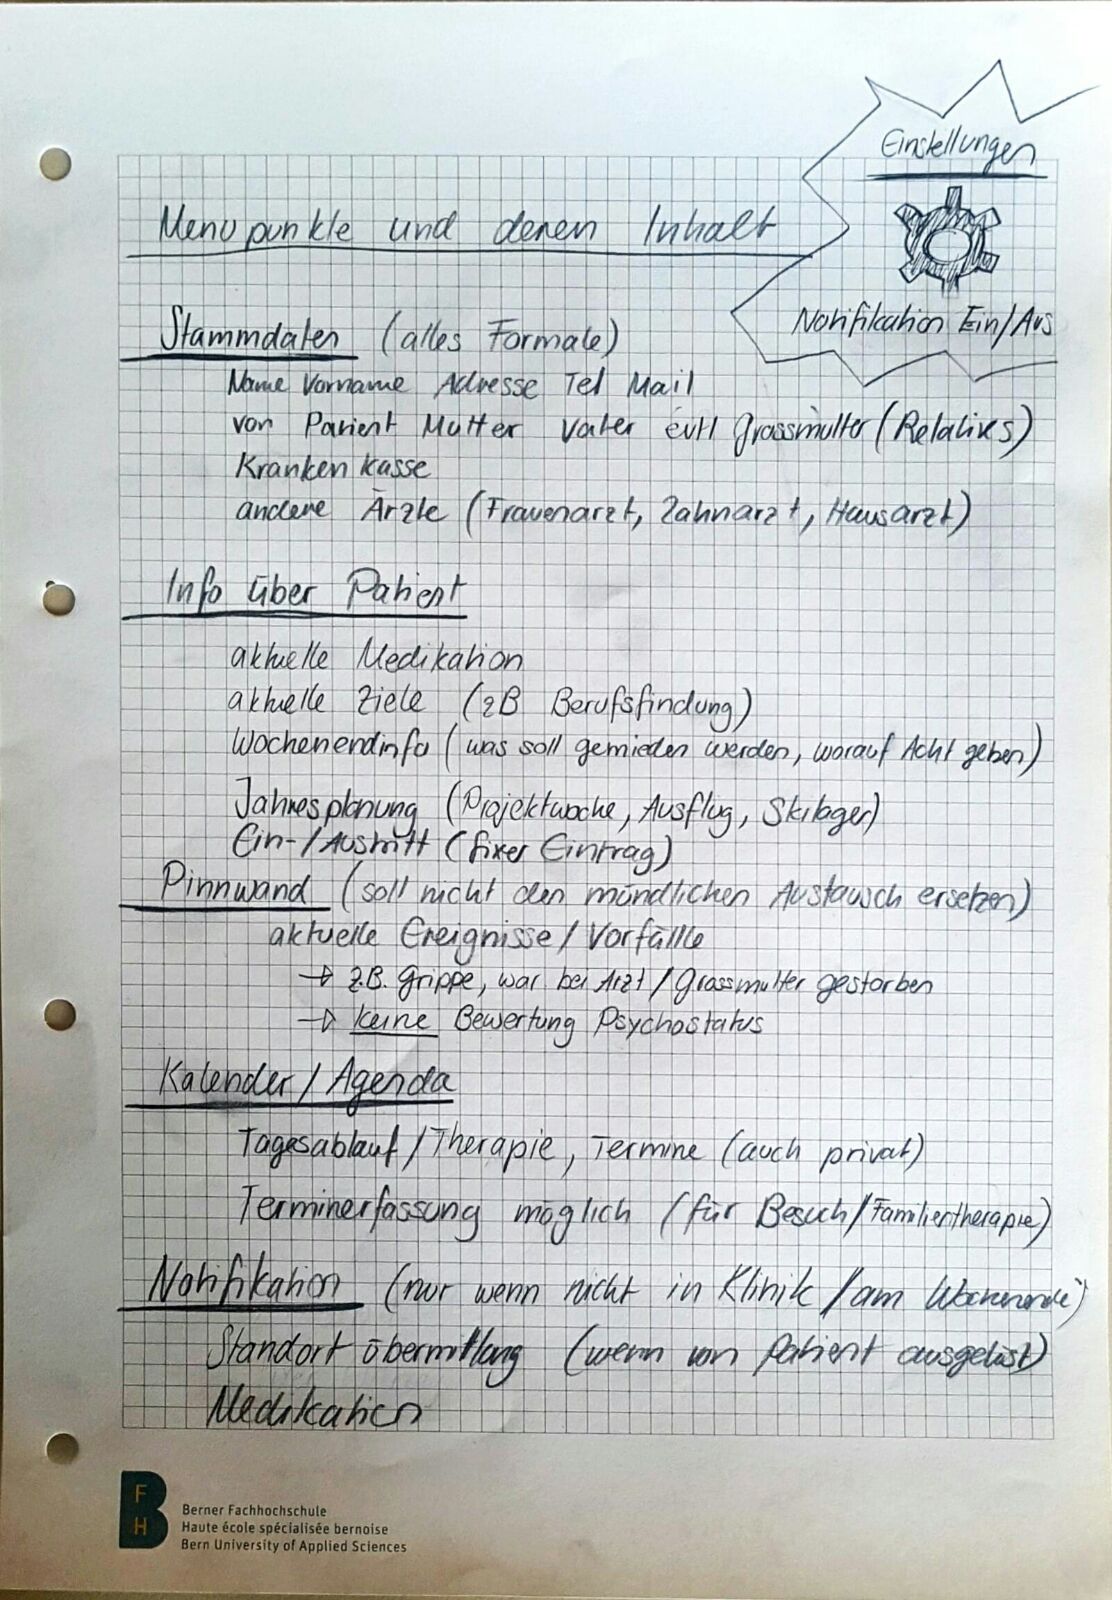 Einstellungen
Menupunkte und deren Inhalt
Notifikation Ein/Aus
Stammdaten (alles Formale)
Name Vorname Adresse Tel Mail
von Patient Mutter Vater evtl Grossmutter (Relatives)
Krankenkasse
andere Ärzte (Frauenarzt, Zahnarzt, Hausarzt)
Info über Patient
aktuelle Medikation
aktuelle Ziele (zB Berufsfindung)
Wochenendinfo (was soll gemieden werden, worauf Acht geben)
Jahresplanung (Projektwoche, Ausflug, Skilager)
Ein-/Austritt (fixer Eintrag)
Pinnwand (soll nicht den mündlichen Austausch ersetzen)
aktuelle Ereignisse/Vorfälle
→ z.B. Grippe, war bei Arzt/Grossmutter gestorben
→ keine Bewertung Psychostatus
Kalender/Agenda
Tagesablauf/Therapie, Termine (auch privat)
Terminerfassung möglich (für Besuch/Familientherapie)
Notifikation (nur wenn nicht in Klinik/am Wochenende)
Standort übermittlung (wenn von Patient ausgelöst)
Medikation
BFH
Berner Fachhochschule
Haute école spécialisée bernoise
Bern University of Applied Sciences